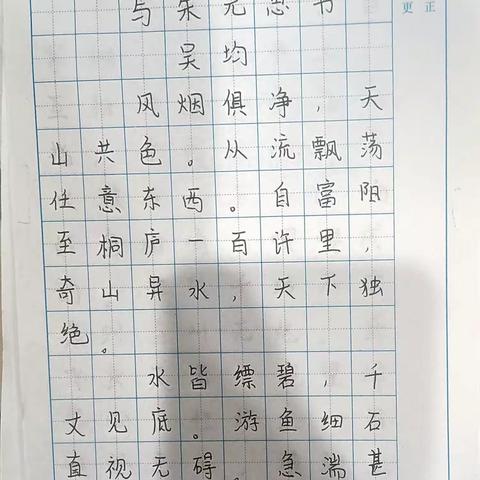 与朱元思书
吴均
风烟俱净,天
山共色。从流飘荡
任意东西。自富阳
至桐庐一百许里,
奇山异水,天下独
绝。
水皆缥碧,千
丈见底。游鱼细石
直视无碍。急湍甚
更正